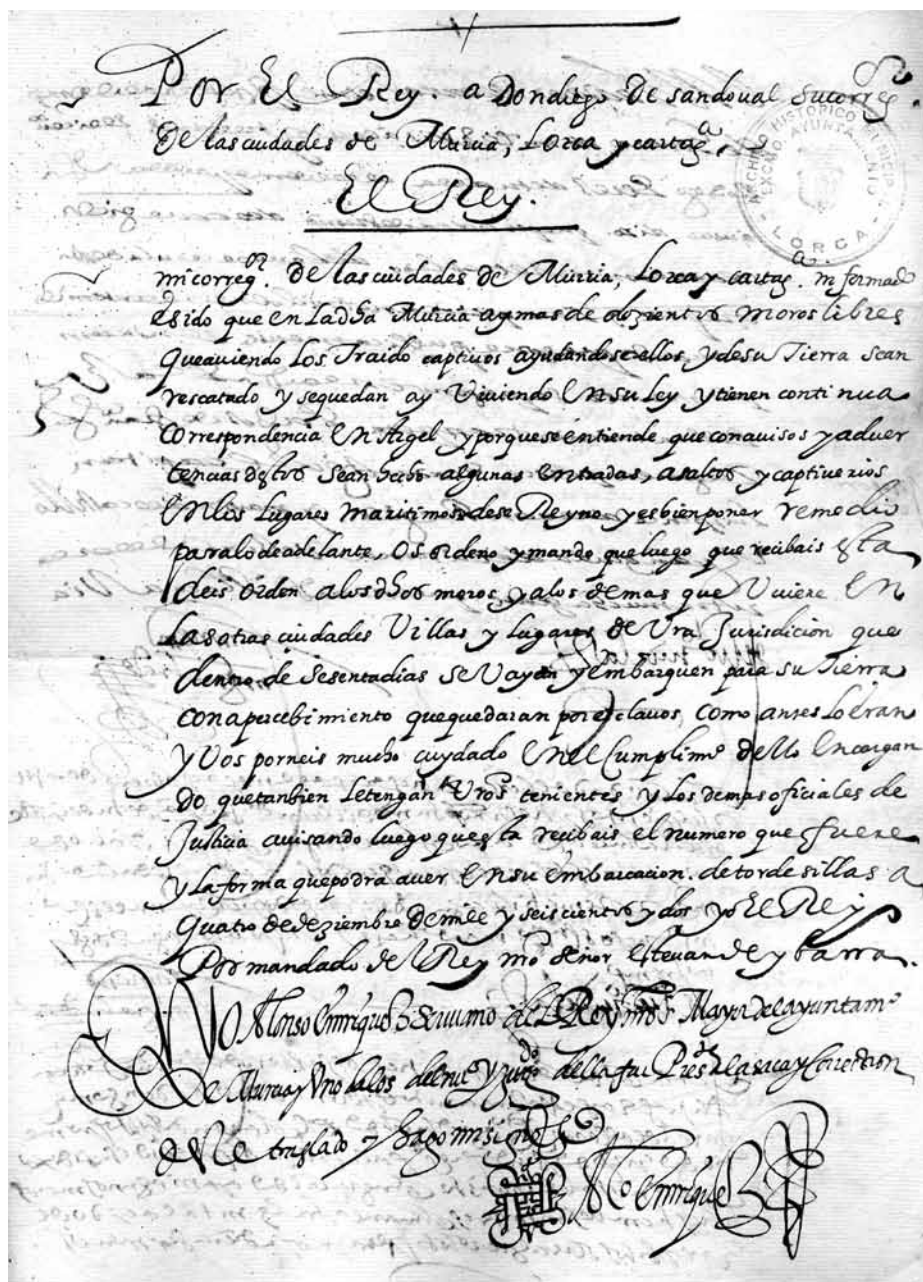 Por El Rey. a Don diego de sandoval su corre^or
De las ciudades de Murcia, Lorca y cartag^a.
ARCHIVO HISTORICO MUNICIPAL
EXCMO. AYUNTAMIENTO
LORCA
El Rey.
mi correg^or. De las ciudades de Murcia, Lorca y cartag^a. informado
E sido que en La dha Murcia ay mas de dozientos moros libres
Que aviendo Los Traido captivos ayudandose ellos, y de su Tierra sean
rescatado y se quedan ay Viviendo En su Ley y tienen continua
Correspondencia En Argel y porque se entiende, que con avisos y adver
tencias destos sean hecho algunas Entradas, asaltos y captiverios
En los Lugares maritimos dese Reyno y es bien poner remedio
para lo de adelante, Os ordeno y mando que luego que recibais esta
deis órden a los dhos moros, y a los demas que Uviere En
Las otras ciudades Villas y Lugares de Vra Jurisdicion que
dentro de Sesenta dias se Vayan y Embarquen para su Tierra
con apercebimiento que quedaran por esclavos, como antes Lo eran
y Vos porneis mucho cuydado En el Cumplim^o dello Encargan
do que tanbien Le tengan Vros tenientes y Los demas oficiales de
Justicia avisando luego que esta recibais el numero que fuere
y La forma que podra aver En su Embarcacion. de tordesillas a
Quatro de deziembre de mill y seiscientos y dos yo El Rey
Por mandado del Rey nro señor estevan de ybarra.
Yo Alonso Enrriquez escrivano del Rey nro s^r Mayor del ayuntam^o
De Murcia y Uno de los del nu^o y juz^do della fui Pres^te a la saca y Coreccion
deste traslado y hago mi signo
A^o Enrriquez